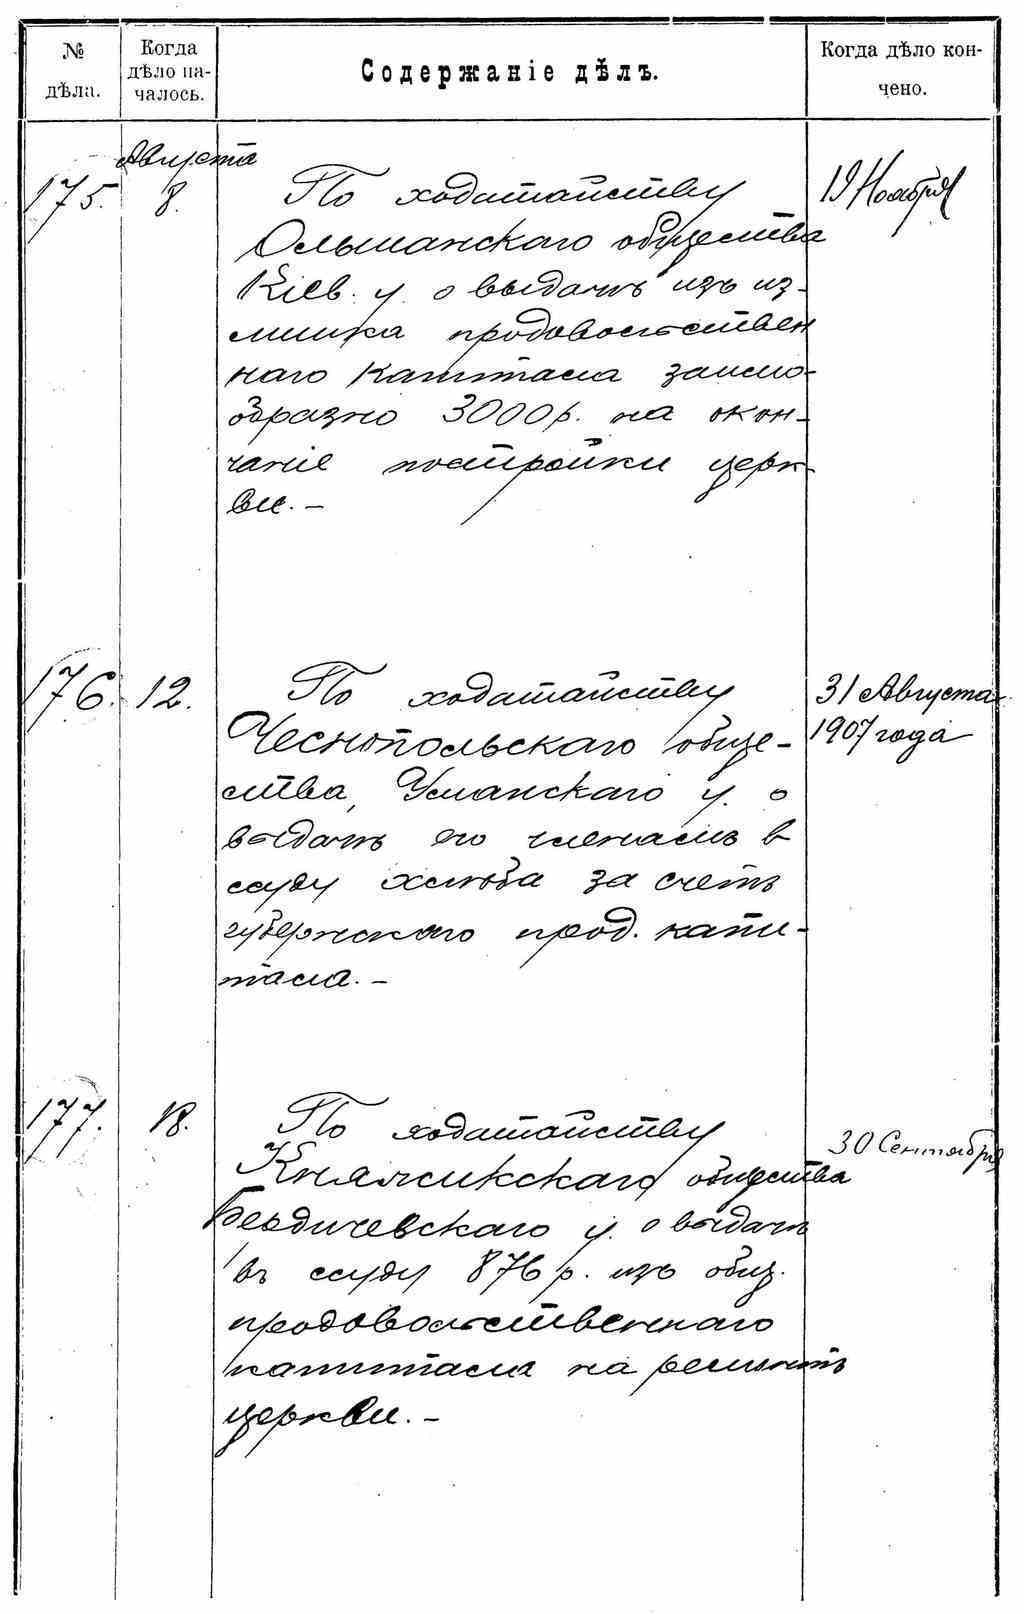 № дѣла.
Когда дѣло на-
чалось.
Содержаніе дѣлъ.
Когда дѣло кон-
чено.
Августа
175. 8. По ходатайству 19 Ноября
Ольшанскаго общества
Кіев. у. о выдачѣ изъ из-
лишка продовольствен
наго капитала заимо-
образно 3000 р. на окон-
чаніе постройки церк-
ви. –
176. 12. По ходатайству 31 Августа
Чеснопольскаго обще- 1907 года
ства, Уманскаго у. о
выдачѣ его членамъ в
ссуду хлѣба за счетъ
губернскаго прод. капи-
тала. –
177. 18. По ходатайству 30 Сентября
Княжикскаго общества
Бердичевскаго у. о выдачѣ
въ ссуду 876 р. изъ общ.
продовольственнаго
капитала на ремонтъ
церкви. –